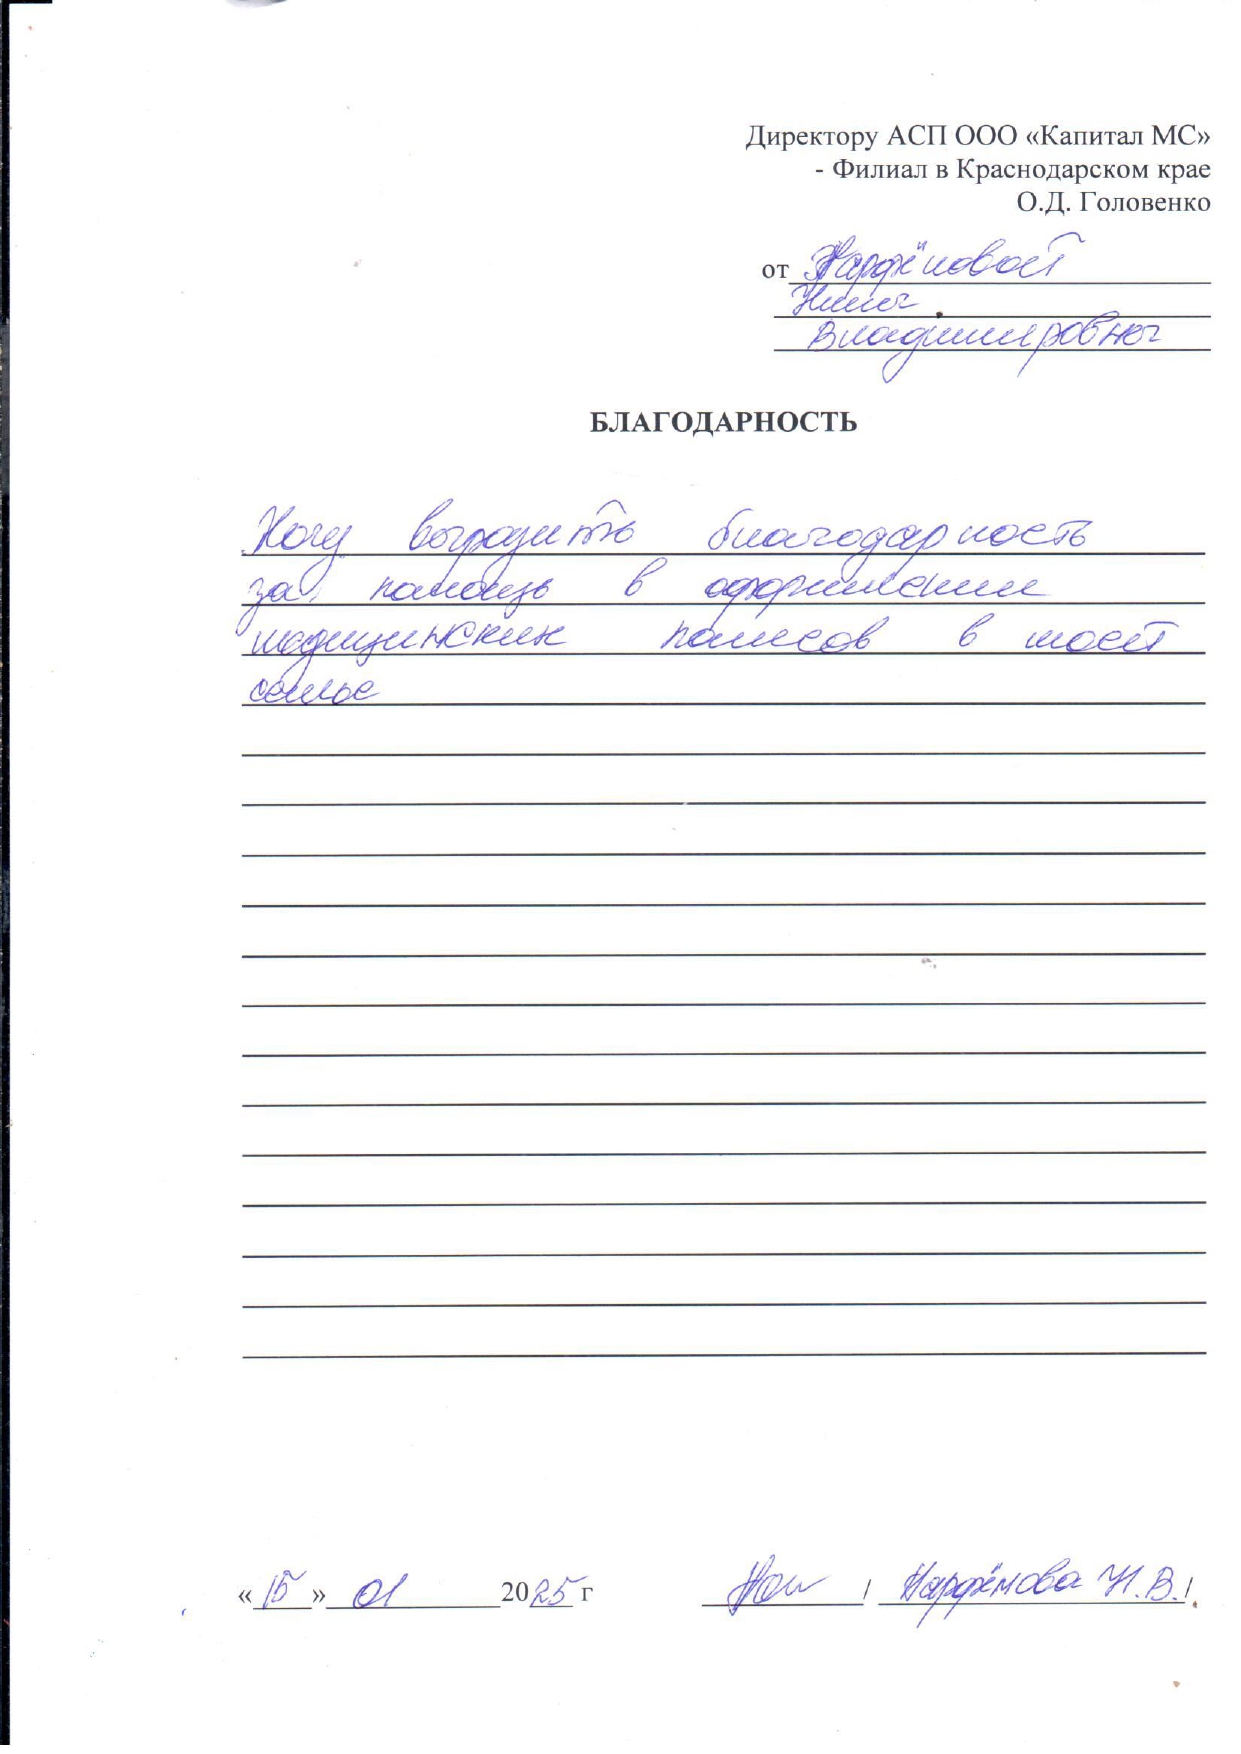 Директору АСП ООО «Капитал МС»
- Филиал в Краснодарском крае
О.Д. Головенко
от Парфёновой
Нины
Владимировны
БЛАГОДАРНОСТЬ
Хочу выразить благодарность
за помощь в оформлении
медицинских полисов в моей
семье
«15» 01 2025 г / Парфёнова Н.В./